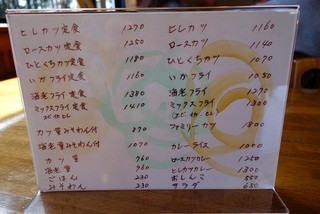 ヒレカツ定食 1270
ロースカツ定食 1250
ひとくちカツ定食 1180
いかフライ定食 1160
海老フライ定食 1380
ミックスフライ定食 1410
(エビ・イカ・ヒレ)
カツ重みそわん付 870
海老重みそわん付 1070
カツ重 960
海老重 960
ごはん 230
みそわん 230
ヒレカツ 1160
ロースカツ 1140
ひとくちカツ 1070
いかフライ 1050
海老フライ 1270
ミックスフライ 1300
(エビ・イカ・ヒレ)
ファミリーカツ 1800
カレーライス 1000
ロースカツカレー 1250
ヒレカツカレー 1300
おしんこ 550
サラダ 650